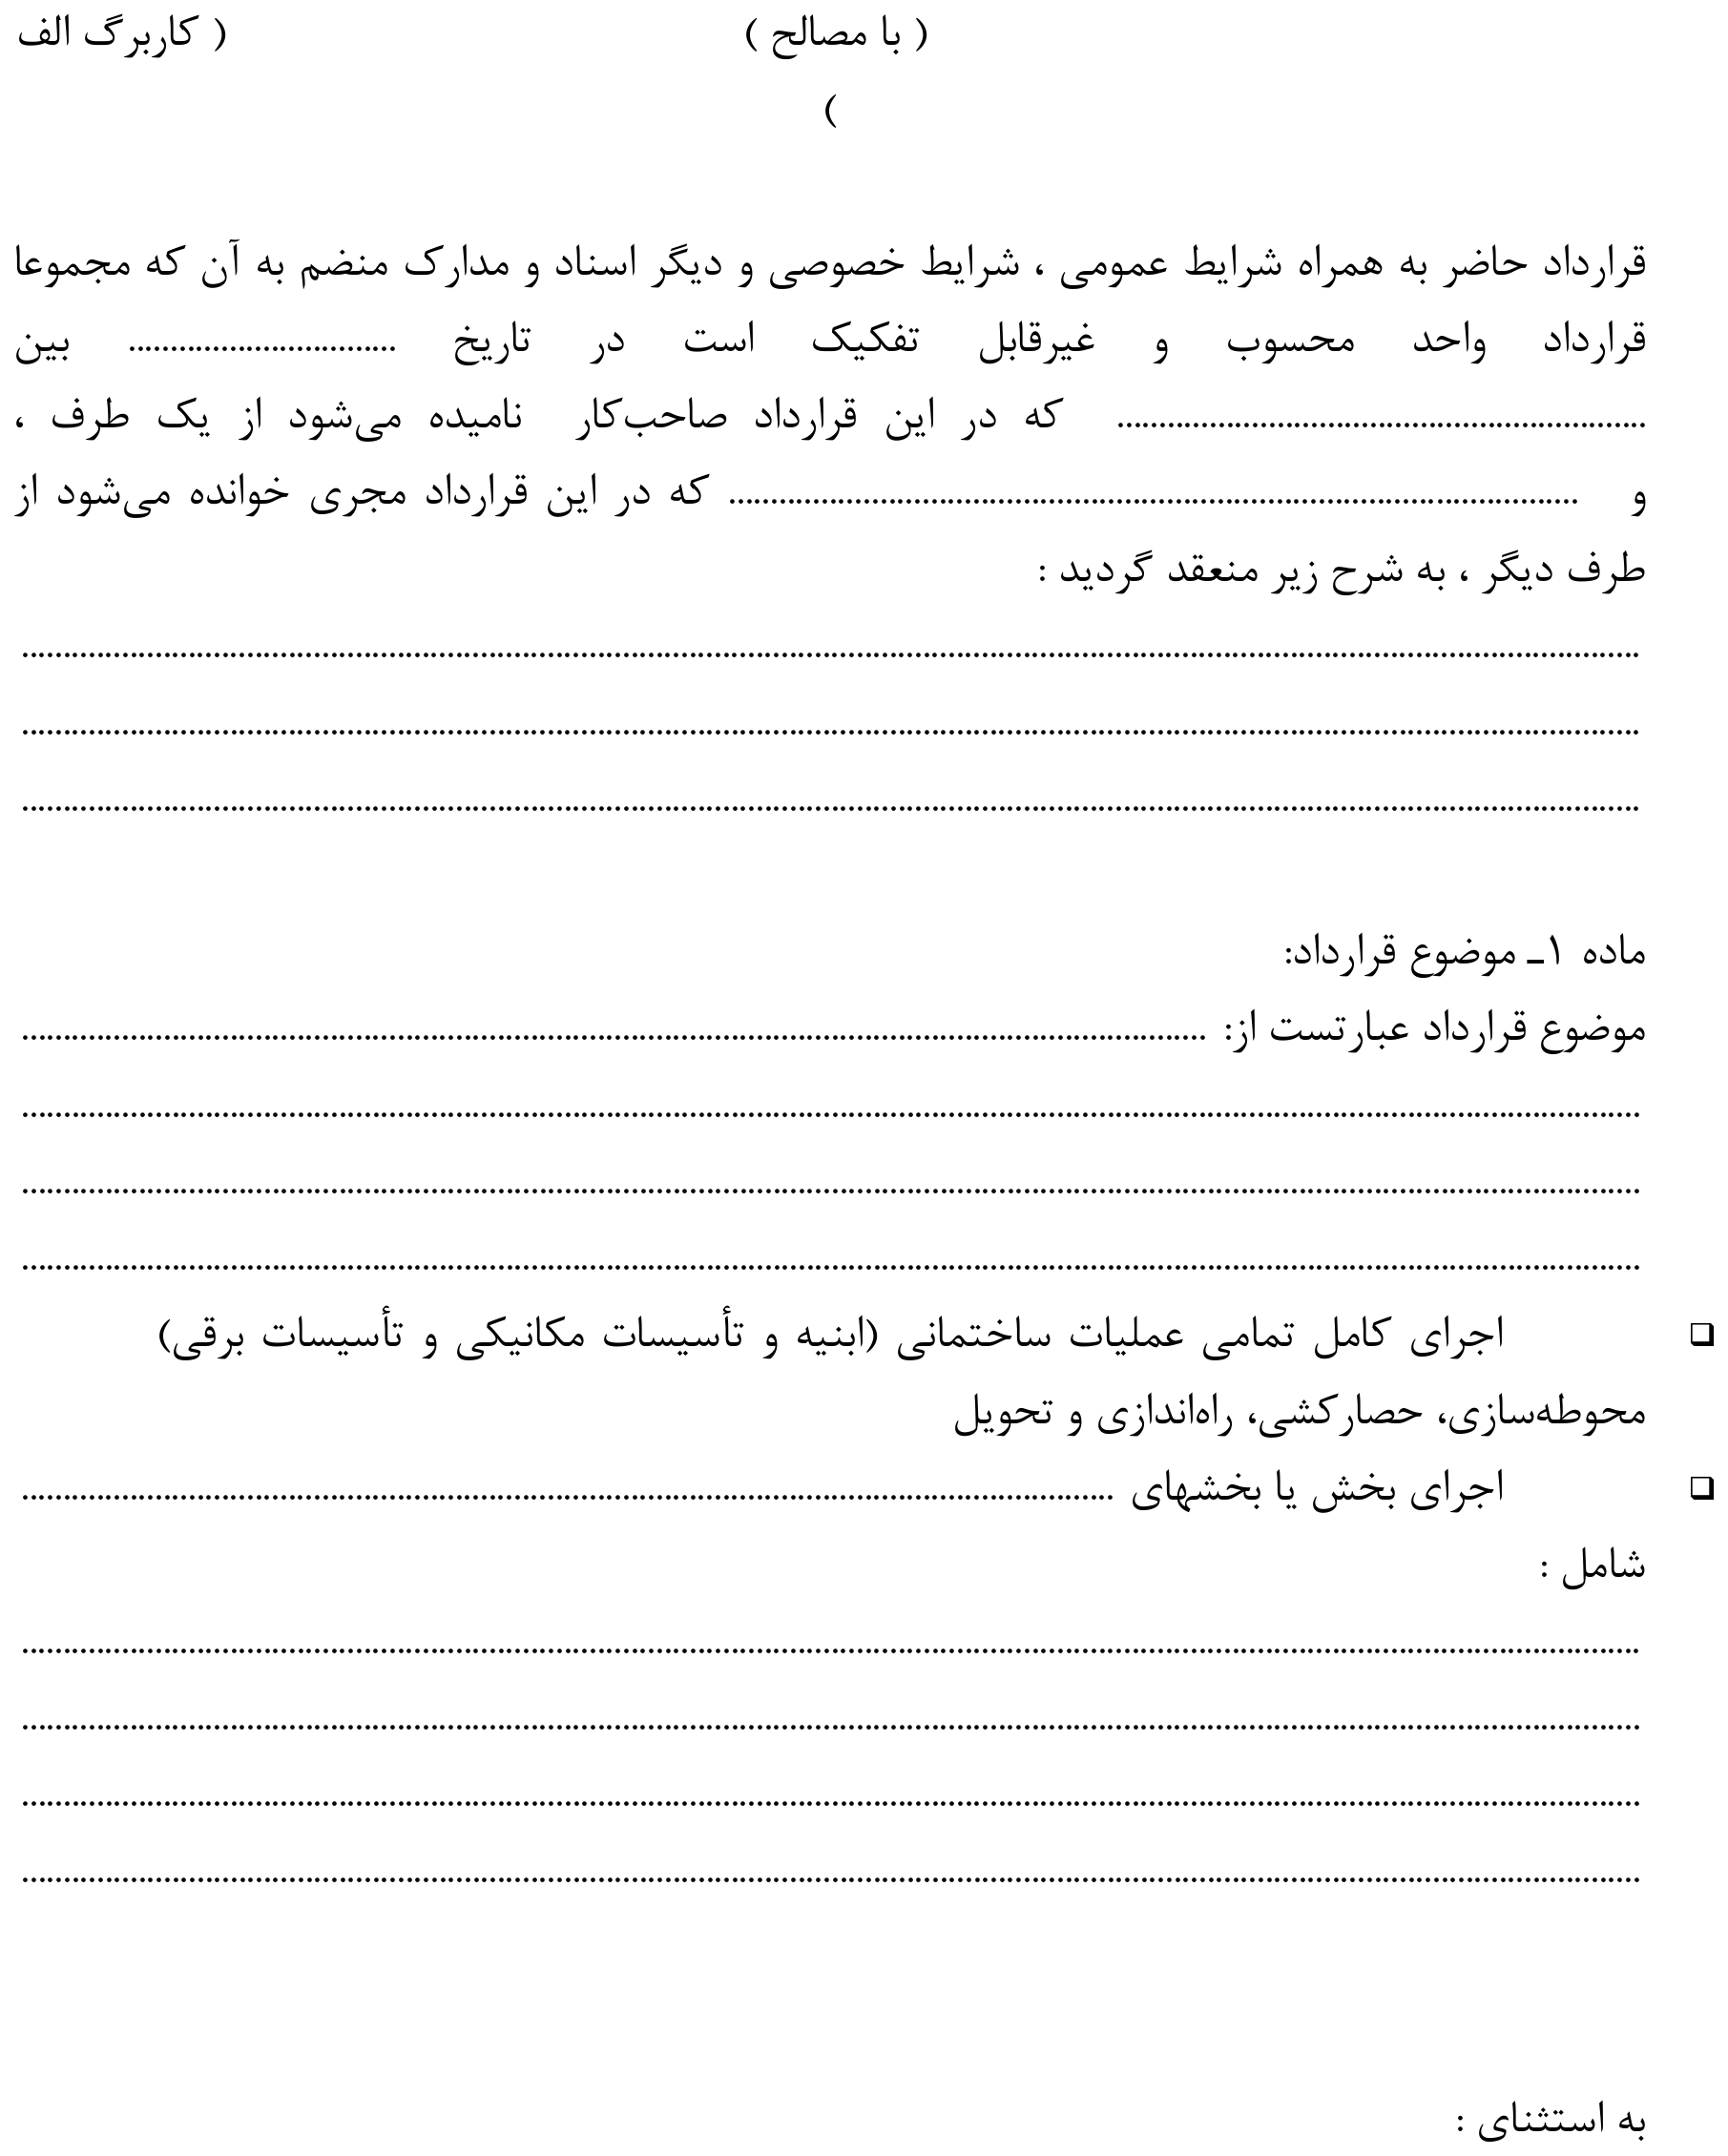 ( با مصالح ) ( کاربرگ الف
)
قرارداد حاضر به همراه شرایط عمومی ، شرایط خصوصی و دیگر اسناد و مدارک منضم به آن که مجموعا
قرارداد واحد محسوب و غیرقابل تفکیک است در تاریخ ................................ بین
................................................................ که در این قرارداد صاحب‌کار نامیده می‌شود از یک طرف ،
و ...................................................................................................... که در این قرارداد مجری خوانده می‌شود از
طرف دیگر ، به شرح زیر منعقد گردید :
....................................................................................................
....................................................................................................
....................................................................................................
ماده ۱ـ موضوع قرارداد:
موضوع قرارداد عبارتست از: ....................................................................................................
....................................................................................................
....................................................................................................
....................................................................................................
❑ اجرای کامل تمامی عملیات ساختمانی (ابنیه و تأسیسات مکانیکی و تأسیسات برقی)
محوطه‌سازی، حصارکشی، راه‌اندازی و تحویل
❑ اجرای بخش یا بخشهای ....................................................................................................
شامل :
....................................................................................................
....................................................................................................
....................................................................................................
....................................................................................................
به استثنای :